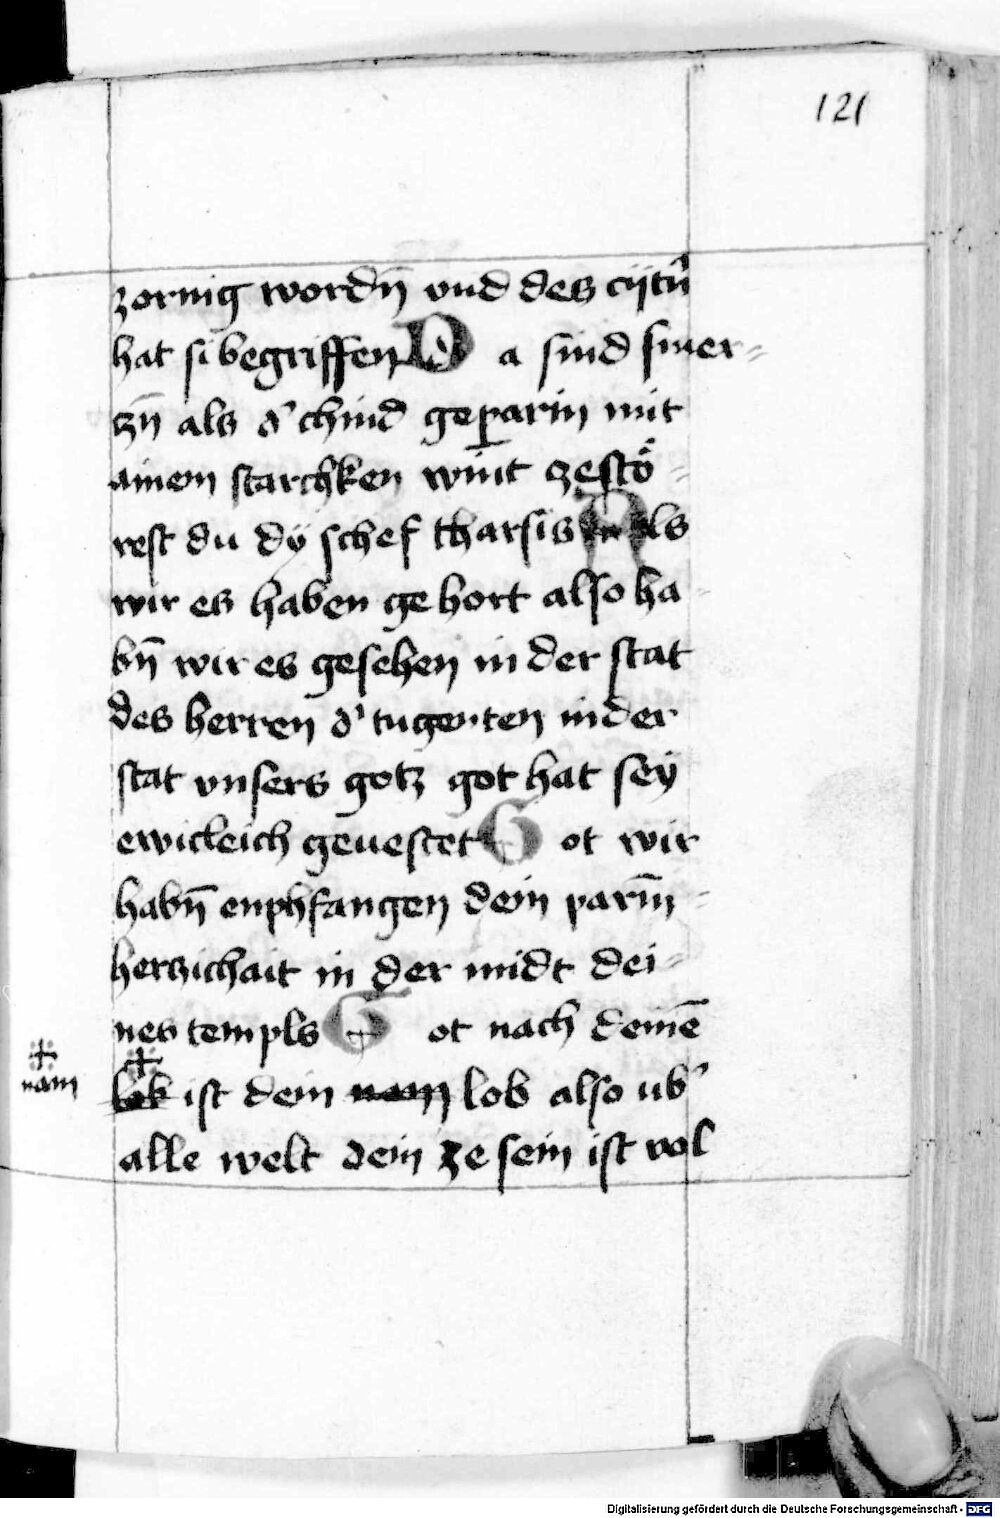 121
zornig wordn̄ vnd des cijtn̄
hat si begriffen D a sind smer-
zn̄ als d' chind geparin mit
ainem starchken wint zestö-
rest du dÿ schef tharsis A ls
wir es haben gehort also ha-
bn̄ wir es gesehen in der stat
des herren d' tugenten in der
stat vnsers gotz got hat seÿ
ewicleich geuestet G ot wir
habn̄ enphfangen dein parm̄-
herzichait in der midt dei-
nes templs G ot nach deinē
nam
ist dein nam lob also ub'
alle welt dein zesein ist vol
Digitalisierung gefördert durch die Deutsche Forschungsgemeinschaft - DFG